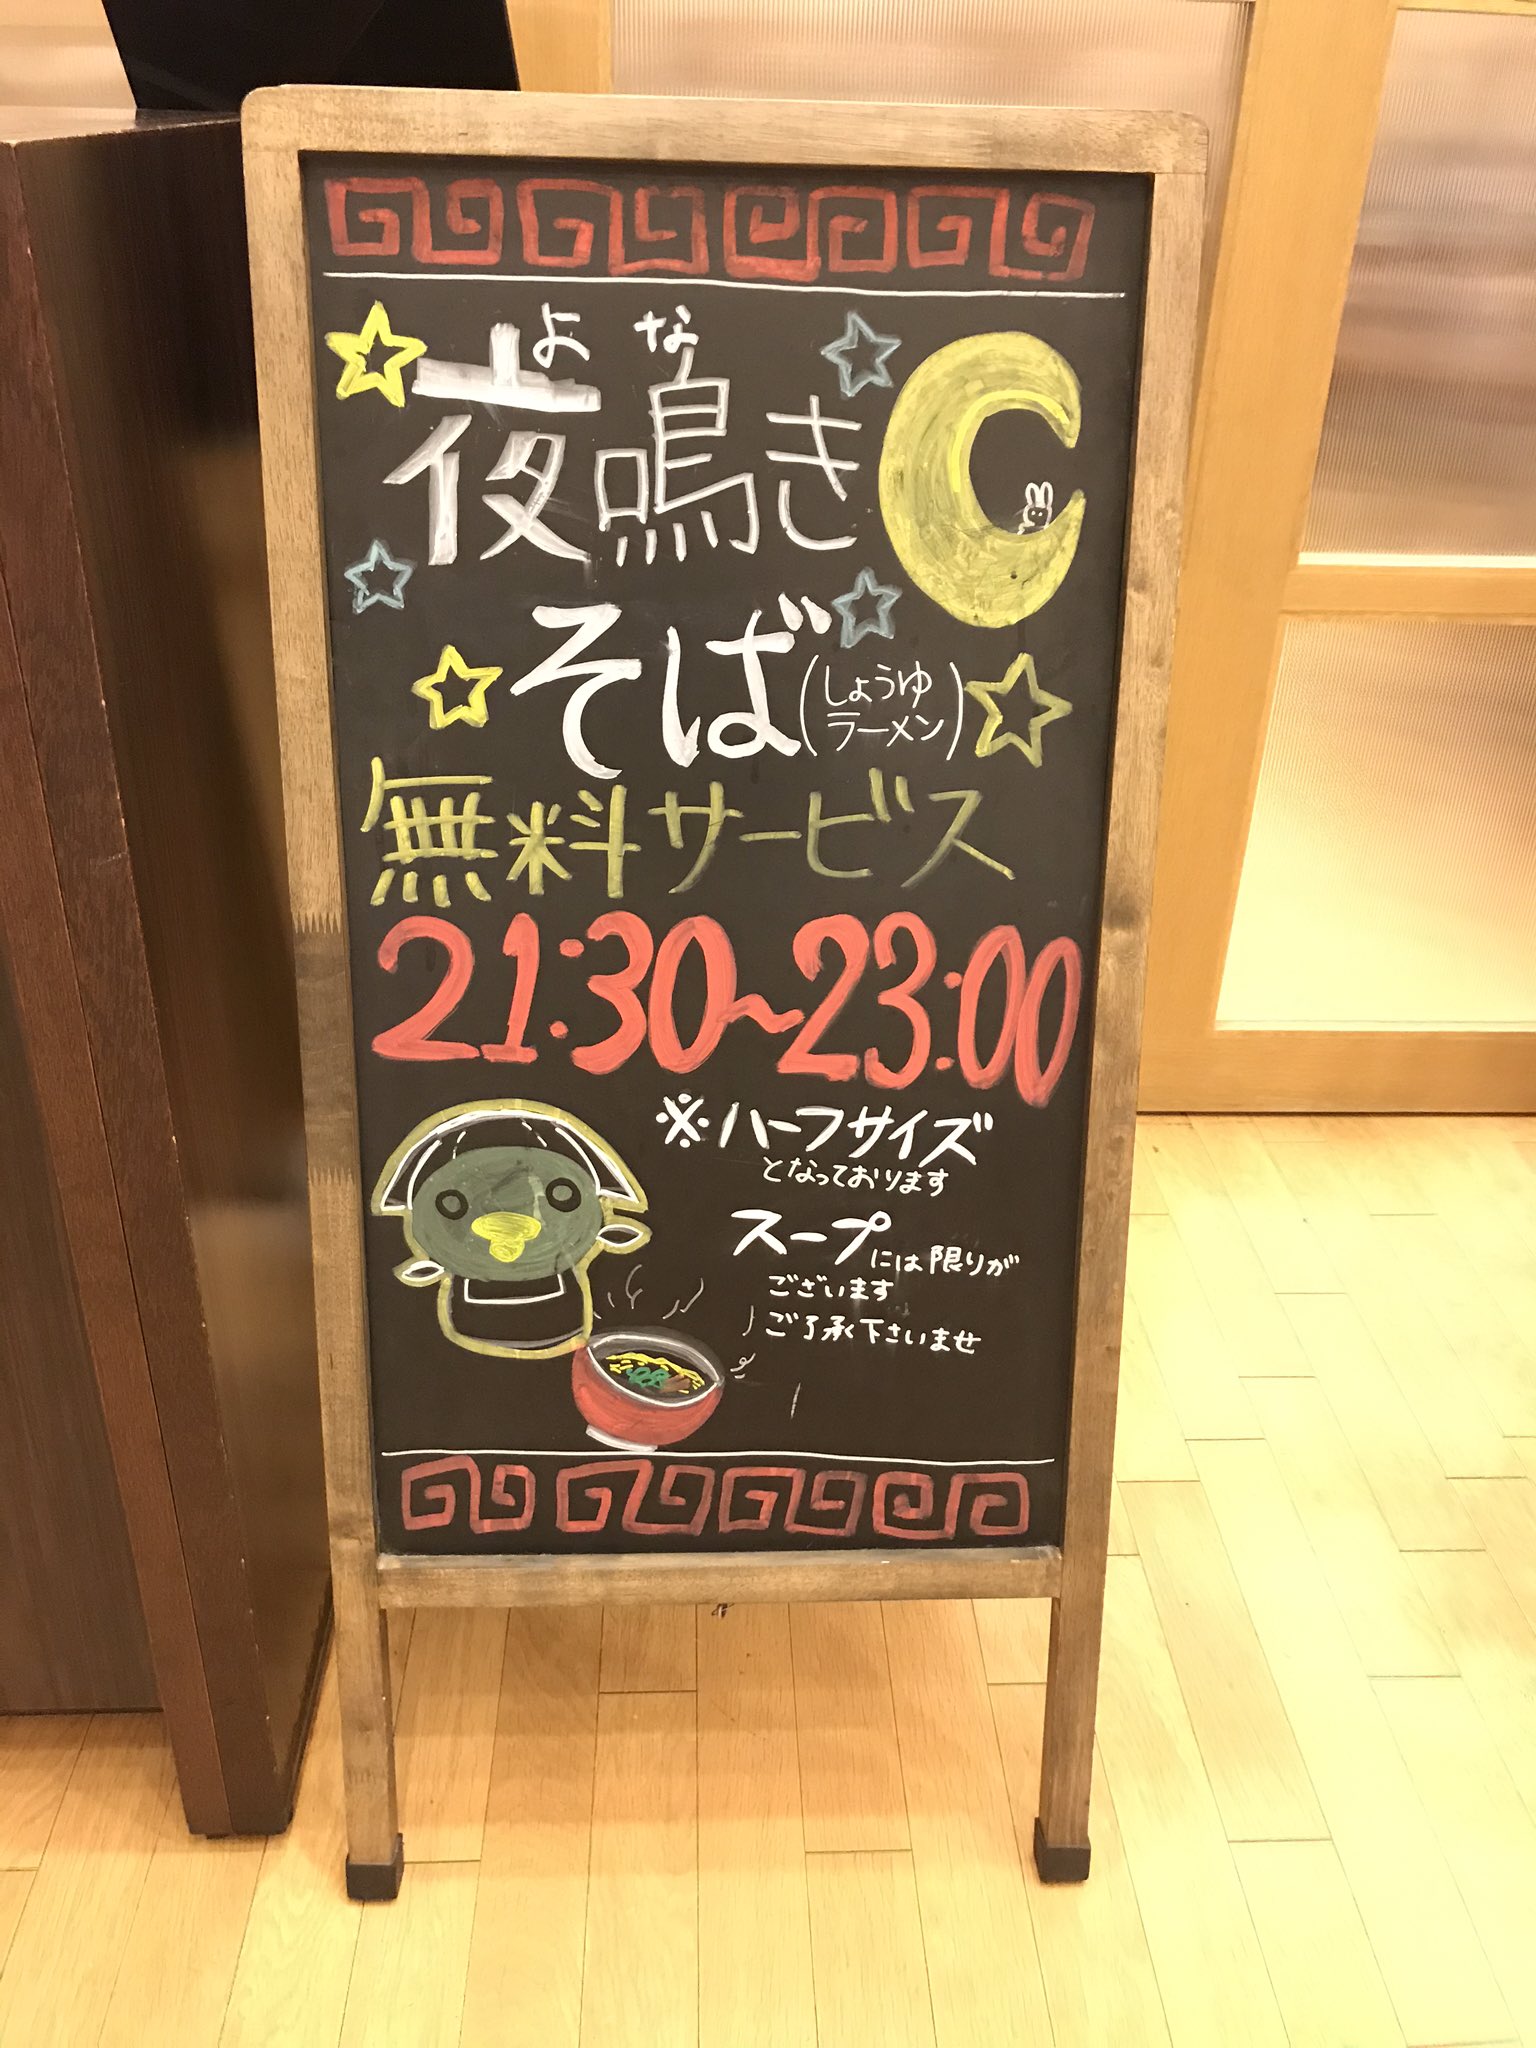 よ な
夜鳴き
そば(しょうゆ
ラーメン)
無料サービス
21:30~23:00
※ハーフサイズ
となっております
スープには限りが
ございます
ご了承下さいませ